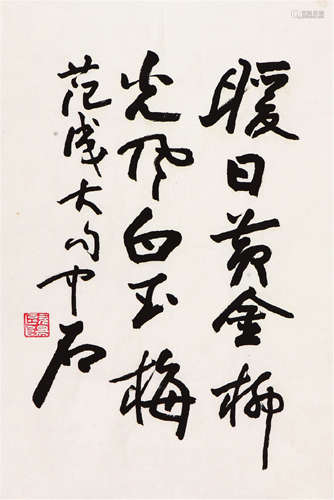 暖日黄金柳
光风白玉梅
范成大句中石